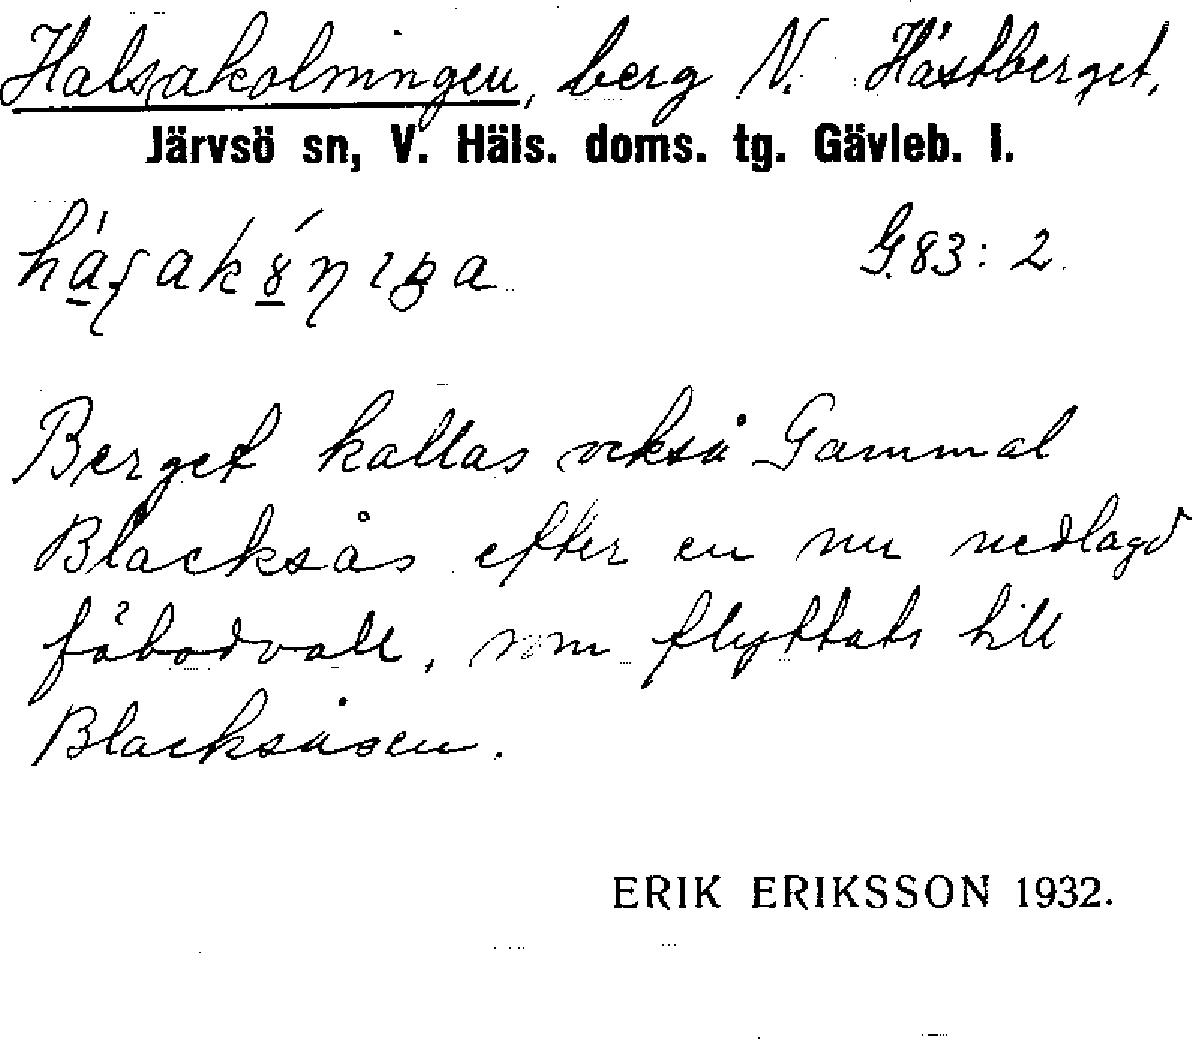 Halsakolningen, berg N. Hästberget.
Järvsö sn, V. Häls. doms. tg. Gävleb. l.
G.83:2.
Berget kallas också Gammal
Blacksås efter en nu nedlagd
fäbodvall, som flyttats till
Blacksåsen.
ERIK ERIKSSON 1932.